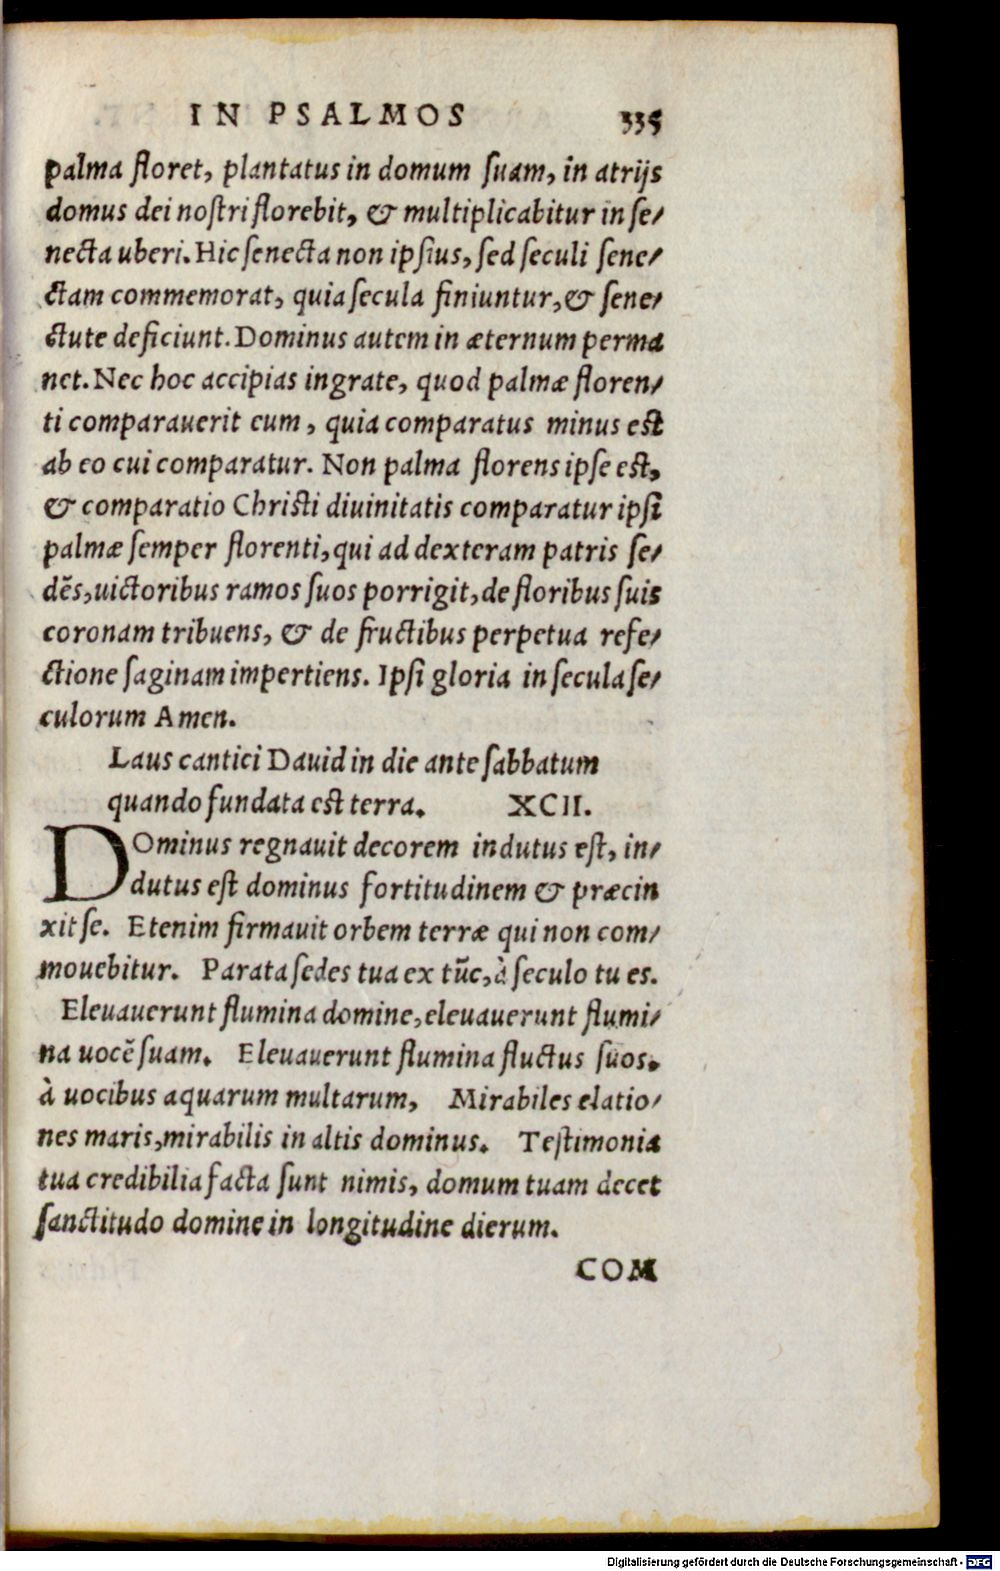 IN PSALMOS 335
palma floret, plantatus in domum suam, in atrijs
domus dei nostri florebit, & multiplicabitur in se/
necta uberi. Hic senecta non ipsius, sed seculi sene/
ctam commemorat, quia secula finiuntur, & sene/
ctute deficiunt. Dominus autem in æternum perma
net. Nec hoc accipias ingrate, quod palmæ floren/
ti comparauerit eum, quia comparatus minus est
ab eo cui comparatur. Non palma florens ipse est,
& comparatio Christi diuinitatis comparatur ipsi
palmæ semper florenti, qui ad dexteram patris se/
dẽs, uictoribus ramos suos porrigit, de floribus suis
coronam tribuens, & de fructibus perpetua refe/
ctione saginam impertiens. Ipsi gloria in secula se/
culorum Amen.
Laus cantici Dauid in die ante sabbatum
quando fundata est terra. XCII.
DOminus regnauit decorem indutus est, in/
dutus est dominus fortitudinem & præcin
xit se. Etenim firmauit orbem terræ qui non com/
mouebitur. Parata sedes tua ex tũc, à seculo tu es.
Eleuauerunt flumina domine, eleuauerunt flumi/
na uocẽ suam. Eleuauerunt flumina fluctus suos.
à uocibus aquarum multarum, Mirabiles elatio/
nes maris, mirabilis in altis dominus. Testimonia
tua credibilia facta sunt nimis, domum tuam decet
sanctitudo domine in longitudine dierum.
COM
Digitalisierung gefördert durch die Deutsche Forschungsgemeinschaft - DFG